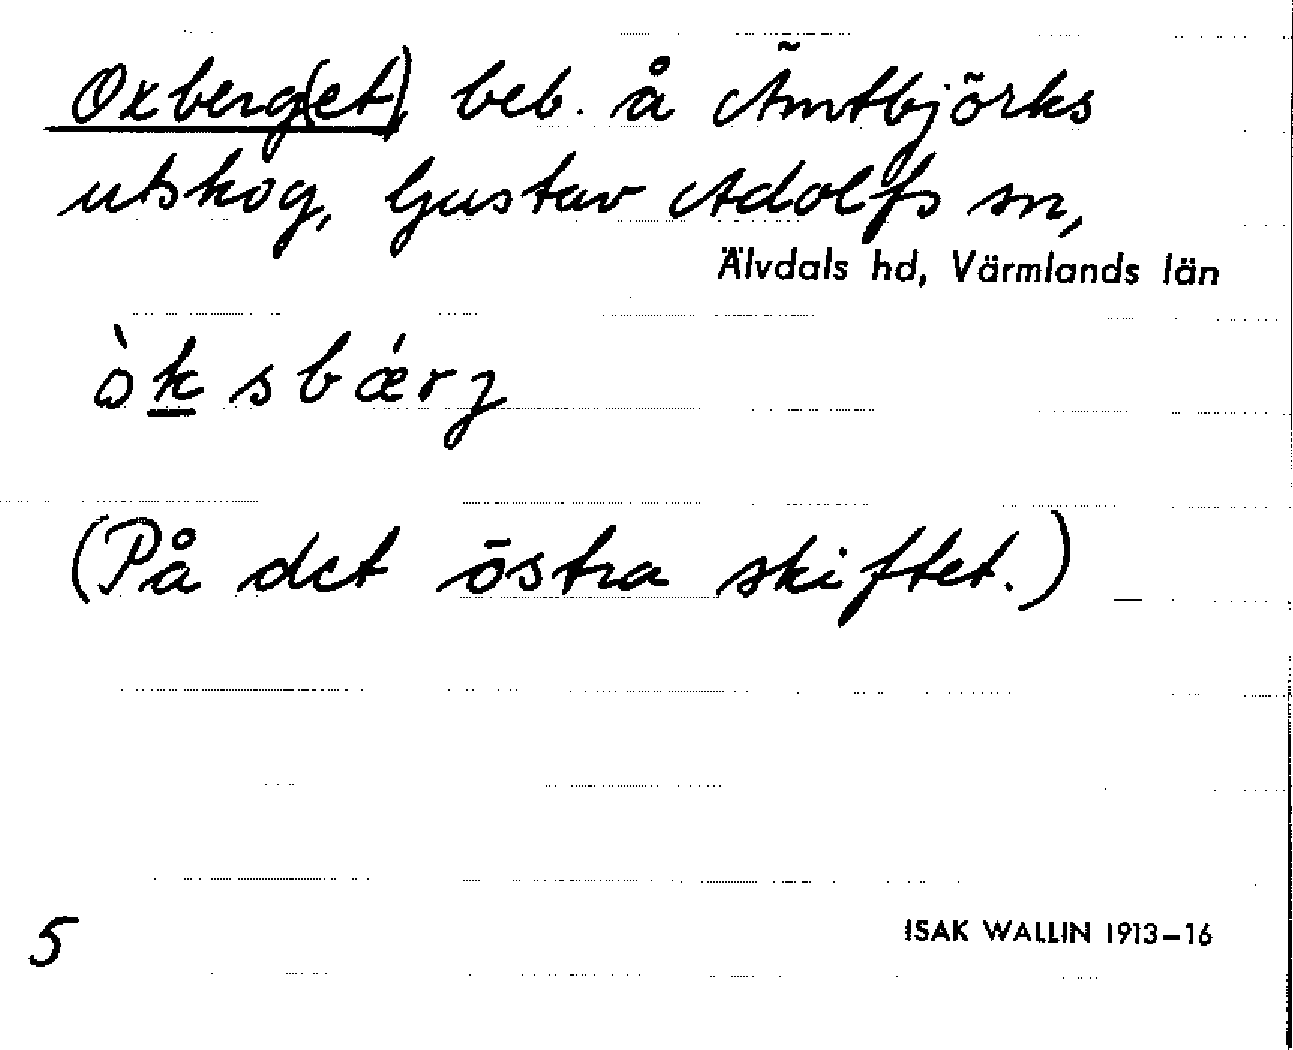 Oxberg(et), beb. å Ämtbjörks
utskog, Gustav Adolfs sn,
Älvdals hd, Värmlands län
òksbǽrj
(På det östra skiftet.)
5
ISAK WALLIN 1913–16